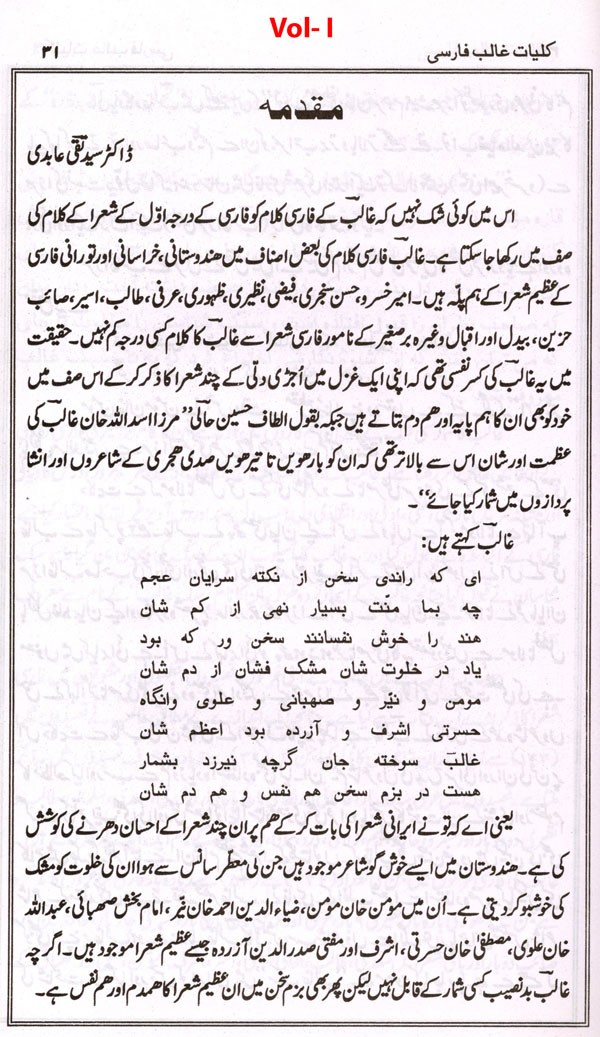 Vol- I
کلیات غالب فارسی ۳۱
مقدمہ
ڈاکٹر سید تقی عابدی
اس میں کوئی شک نہیں کہ غالبؔ کے فارسی کلام کو فارسی کے درجہ اوّل کے شعرا کے کلام کی
صف میں رکھا جا سکتا ہے۔ غالبؔ فارسی کلام کی بعض اصناف میں ھندوستانی، خراسانی اور تورانی فارسی
کے عظیم شعرا کے ہم پلّہ ہیں۔ امیر خسرو، حسن سنجری، فیضی، نظیری، ظہوری، عرفی، طالب، اسیر، صائب
حزین، بیدل اور اقبال وغیرہ برصغیر کے نامور فارسی شعرا سے غالبؔ کا کلام کسی درجہ کم نہیں۔ حقیقت
میں یہ غالبؔ کی کسر نفسی تھی کہ اپنی ایک غزل میں اُجڑی دلّی کے چند شعرا کا ذکر کر کے اس صف میں
خود کو بھی ان کا ہم پایہ اور ھم دم بتاتے ہیں جبکہ بقول الطاف حسین حالیؔ ’’مرزا اسد اللہ خان غالبؔ کی
عظمت اور شان اس سے بالاتر تھی کہ ان کو بارھویں تا تیرھویں صدی ھجری کے شاعروں اور انشا
پردازوں میں شمار کیا جائے‘‘۔
غالبؔ کہتے ہیں:
ای که راندی سخن از نکته سرایان عجم
چه بما منّت بسیار نهی از کم شان
هند را خوش نفسانند سخن ور که بود
یاد در خلوت شان مشک فشان از دم شان
مومن و نیّر و صهبائی و علوی وانگاه
حسرتی اشرف و آزرده بود اعظم شان
غالبؔ سوخته جان گرچه نیرزد بشمار
هست در بزم سخن هم نفس و هم دم شان
یعنی اے کہ تو نے ایرانی شعرا کی بات کر کے ھم پر ان چند شعرا کے احسان دھرنے کی کوشش
کی ہے۔ ھندوستان میں ایسے خوش گو شاعر موجود ہیں جن کی معطر سانس سے ہوا ان کی خلوت کو مشک
کی خوشبو کر دیتی ہے۔ اُن میں مؤمن خان مؤمن، ضیاء الدین احمد خان نیّر، امام بخش صھبائی، عبد اللہ
خان علوی، مصطفٰی خان حسرتی، اشرف اور مفتی صدر الدین آزردہ جیسے عظیم شعرا موجود ہیں۔ اگرچہ
غالبؔ بد نصیب کسی شمار کے قابل نہیں لیکن پھر بھی بزم سخن میں ان عظیم شعرا کا ھمدم اور ھم نفس ہے۔